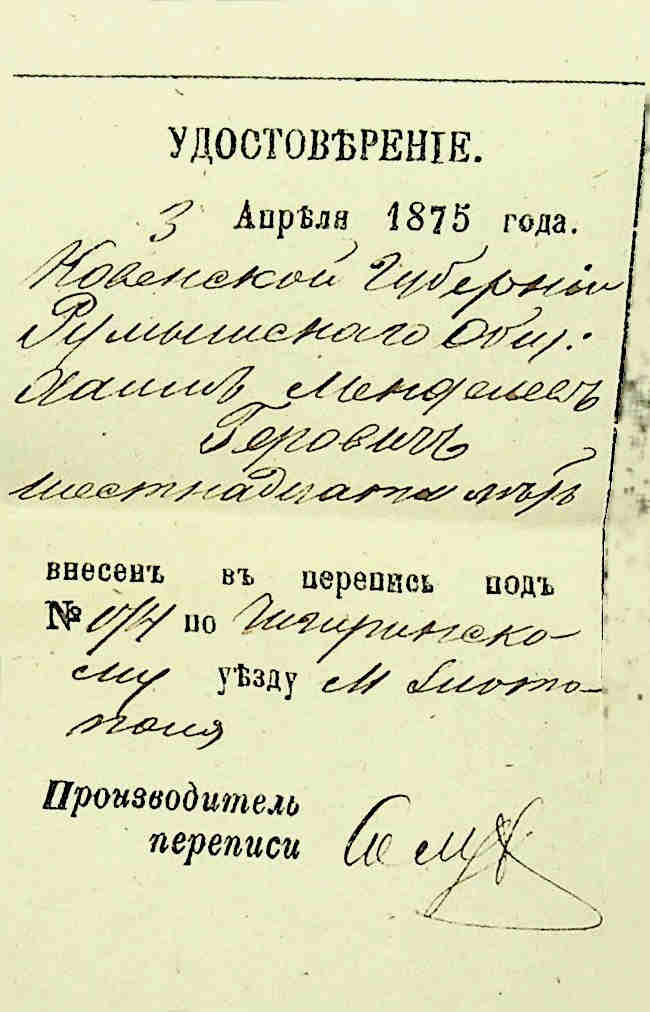 УДОСТОВѢРЕНІЕ.
3 Апрѣля 1875 года.
Ковенской Губерніи
Румшискаго Общ:
Хаимъ Менделевъ
Герович
шестнадцати лѣтъ
внесенъ въ перепись подъ
№ по Чигиринско-
му уѣзду М Злато-
поля
Производитель
переписи